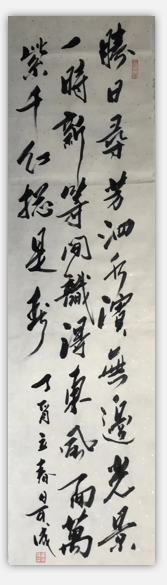 勝日尋芳泗水濱無邊光景
一時新等閒識得東風面萬
紫千红總是春
丁酉立春日